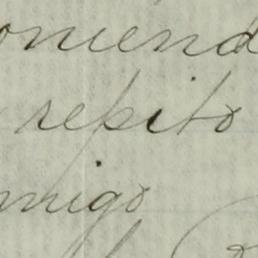 omend
repito
migo